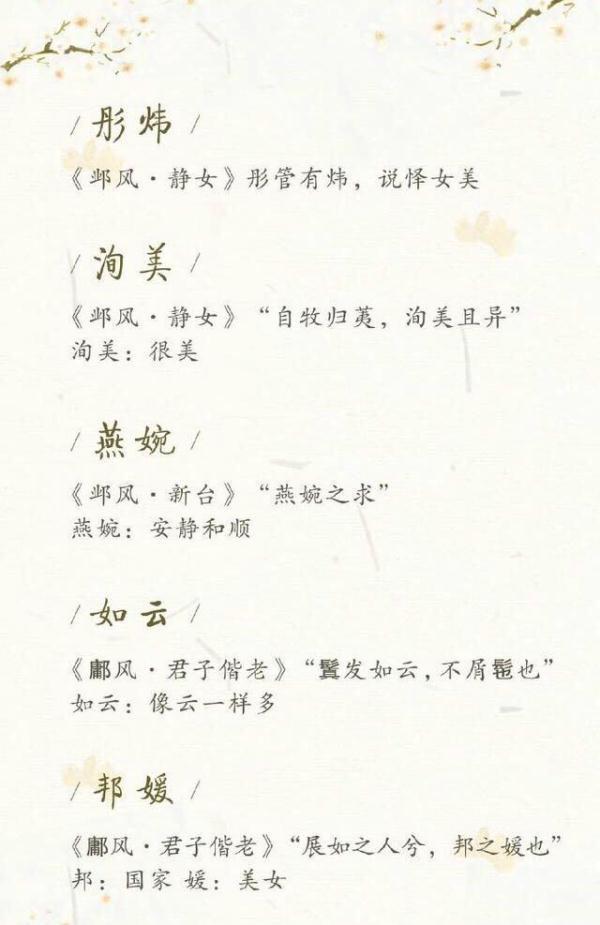 / 彤炜 /
《邶风·静女》彤管有炜，说怿女美
/ 洵美 /
《邶风·静女》“自牧归荑，洵美且异”
洵美：很美
/ 燕婉 /
《邶风·新台》“燕婉之求”
燕婉：安静和顺
/ 如云 /
《鄘风·君子偕老》“鬒发如云，不屑髢也”
如云：像云一样多
/ 邦媛 /
《鄘风·君子偕老》“展如之人兮，邦之媛也”
邦：国家 媛：美女